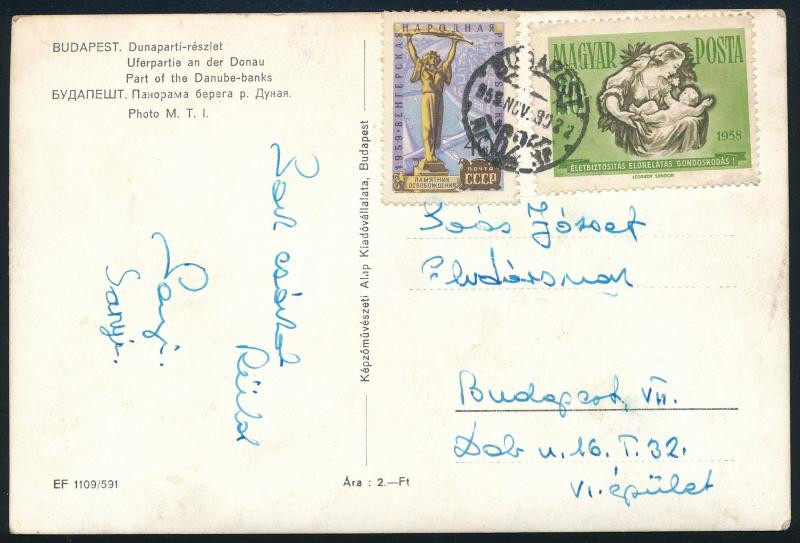 BUDAPEST. Dunaparti-részlet
Uferpartie an der Donau
Part of the Danube-banks
БУДАПЕШТ. Панорама берега р. Дуная.
Photo M. T. I.
1959 · ВЕНГЕРСКАЯ
НАРОДНАЯ
РЕСПУБЛИКА
40
ПОЧТА
СССР
ПАМЯТНИК
ОСВОБОЖДЕНИЯ
BUDAPEST
MAGYAR POSTA
1958
ÉLETBIZTOSITÁS ELŐRELÁTÁS GONDOSKODÁS!
LEGRÁDY SÁNDOR
Soós József
Elvtársnak
Budapest, VII.
Dob u. 16. T. 32.
VI. épület
Sok csókkal
Sanyi.
Képzőművészeti Alap Kiadóvállalata, Budapest
EF 1109/591
Ára : 2.—Ft